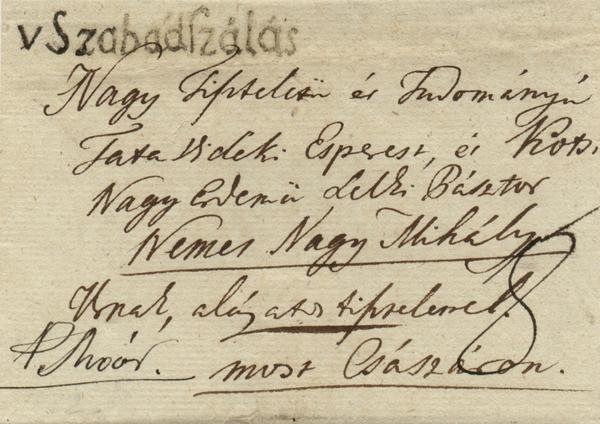 v Szabadszálás
Nagy Tiszteletü és Tudományú
Tata Videki Esperest, és Kots.
Nagy Erdemü Lelki Pásztor
Nemes Nagy Mihály
Urnak, alázatos tisztelettel.
most Császáron.